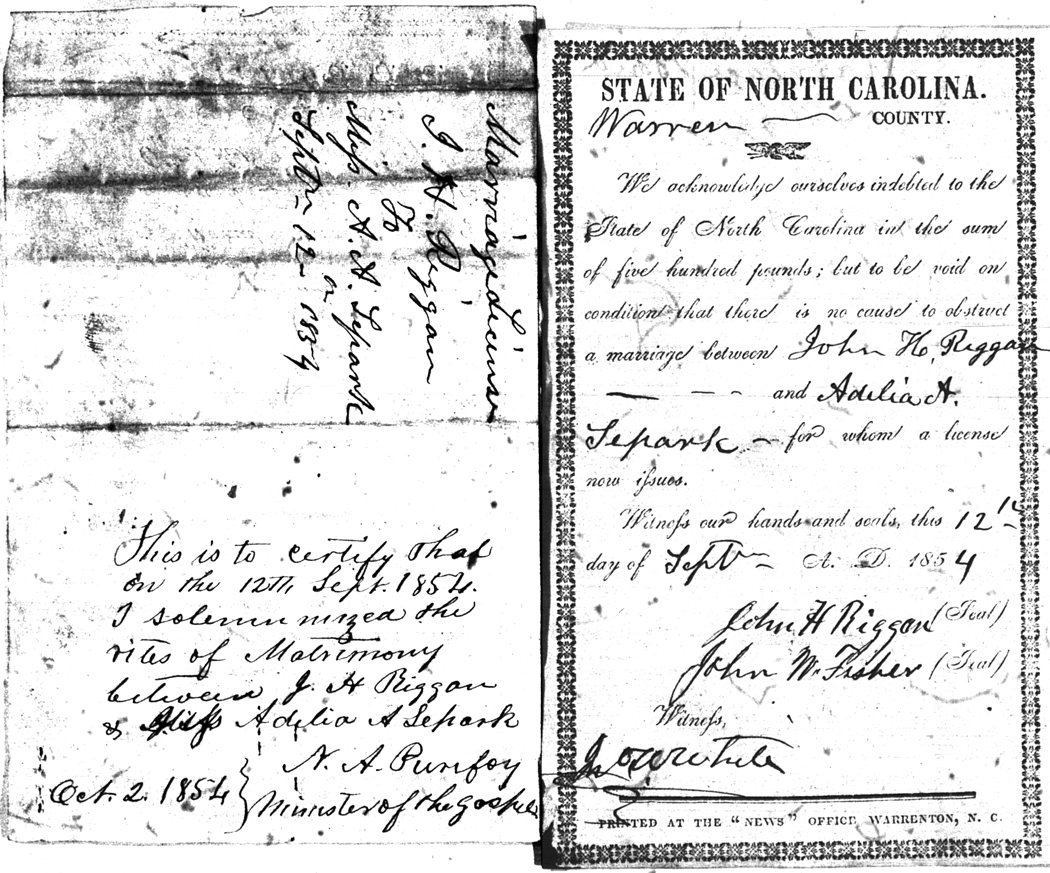 Marriage License
J. H. Riggan
To
Miss. A. A. Separk
on
Septr - 12 - 1854
This is to certify that
on the 12th Sept. 1854.
I solemnized the
rites of Matrimony
between J. H Riggan
& Miss Adelia A Separk
N. A. Purefoy
Oct. 2. 1854 } Minister of the gospel
STATE OF NORTH CAROLINA.
Warren COUNTY.
We acknowledge ourselves indebted to the
State of North Carolina in the sum
of five hundred pounds; but to be void on
condition that there is no cause to obstruct
a marriage between John H, Riggan
— - - and Adelia A.
Separk — for whom a license
now issues.
Witness our hands and seals, this 12th
day of Sept — A. D. 1854
John H Riggan (Seal)
John W. Fisher (Seal)
Witness,
White
PRINTED AT THE "NEWS" OFFICE WARRENTON, N. C.